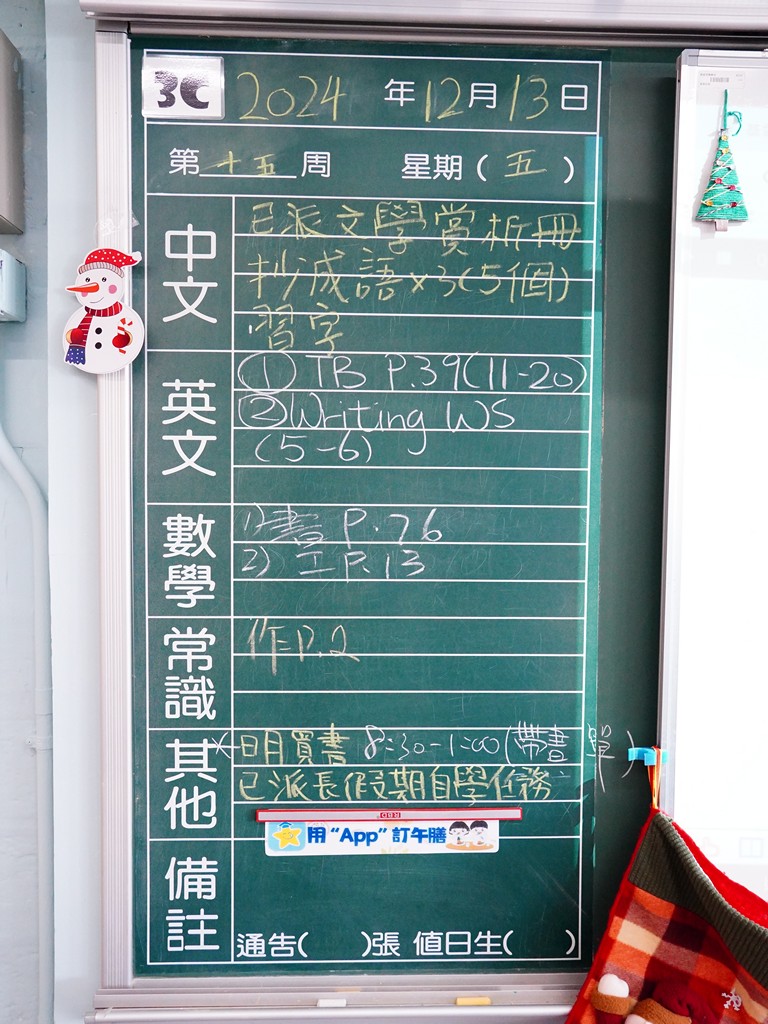 3C 2024 年 12 月 13 日
第 十五 周 星期 ( 五 )
中文
已派文學賞析冊
抄成語×3(5個)
習字
英文
① TB P.39(11-20)
② Writing WS
(5-6)
數學
1) 書 P.76
2) 工 P.13
常識
作P.2
其他
×明買書 8:30-1:00(帶書單)
已派長假期自學任務
用“App”訂午膳
備註
通告( )張 值日生( )